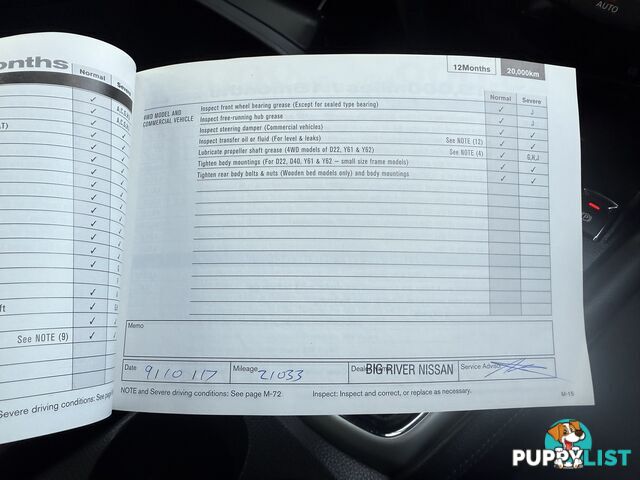 onths
Normal
Severe
See NOTE (9)
Severe driving conditions: See page
12Months
20,000km
Normal Severe
4WD MODEL AND
COMMERCIAL VEHICLE
Inspect front wheel bearing grease (Except for sealed type bearing) ✓ J
Inspect free-running hub grease ✓ J
Inspect steering damper (Commercial vehicles) ✓ ✓
Inspect transfer oil or fluid (For level & leaks) See NOTE (12) ✓ ✓
Lubricate propeller shaft grease (4WD models of D22, Y61 & Y62) See NOTE (4) ✓ G,H,J
Tighten body mountings (For D22, D40, Y61 & Y62 – small size frame models) ✓ ✓
Tighten rear body bolts & nuts (Wooden bed models only) and body mountings ✓ ✓
Memo
Date 9/10/17 Mileage 21033 BIG RIVER NISSAN Service Advisor
NOTE and Severe driving conditions: See page M-72. Inspect: Inspect and correct, or replace as necessary. M-15
AUTO
PUPPYLIST